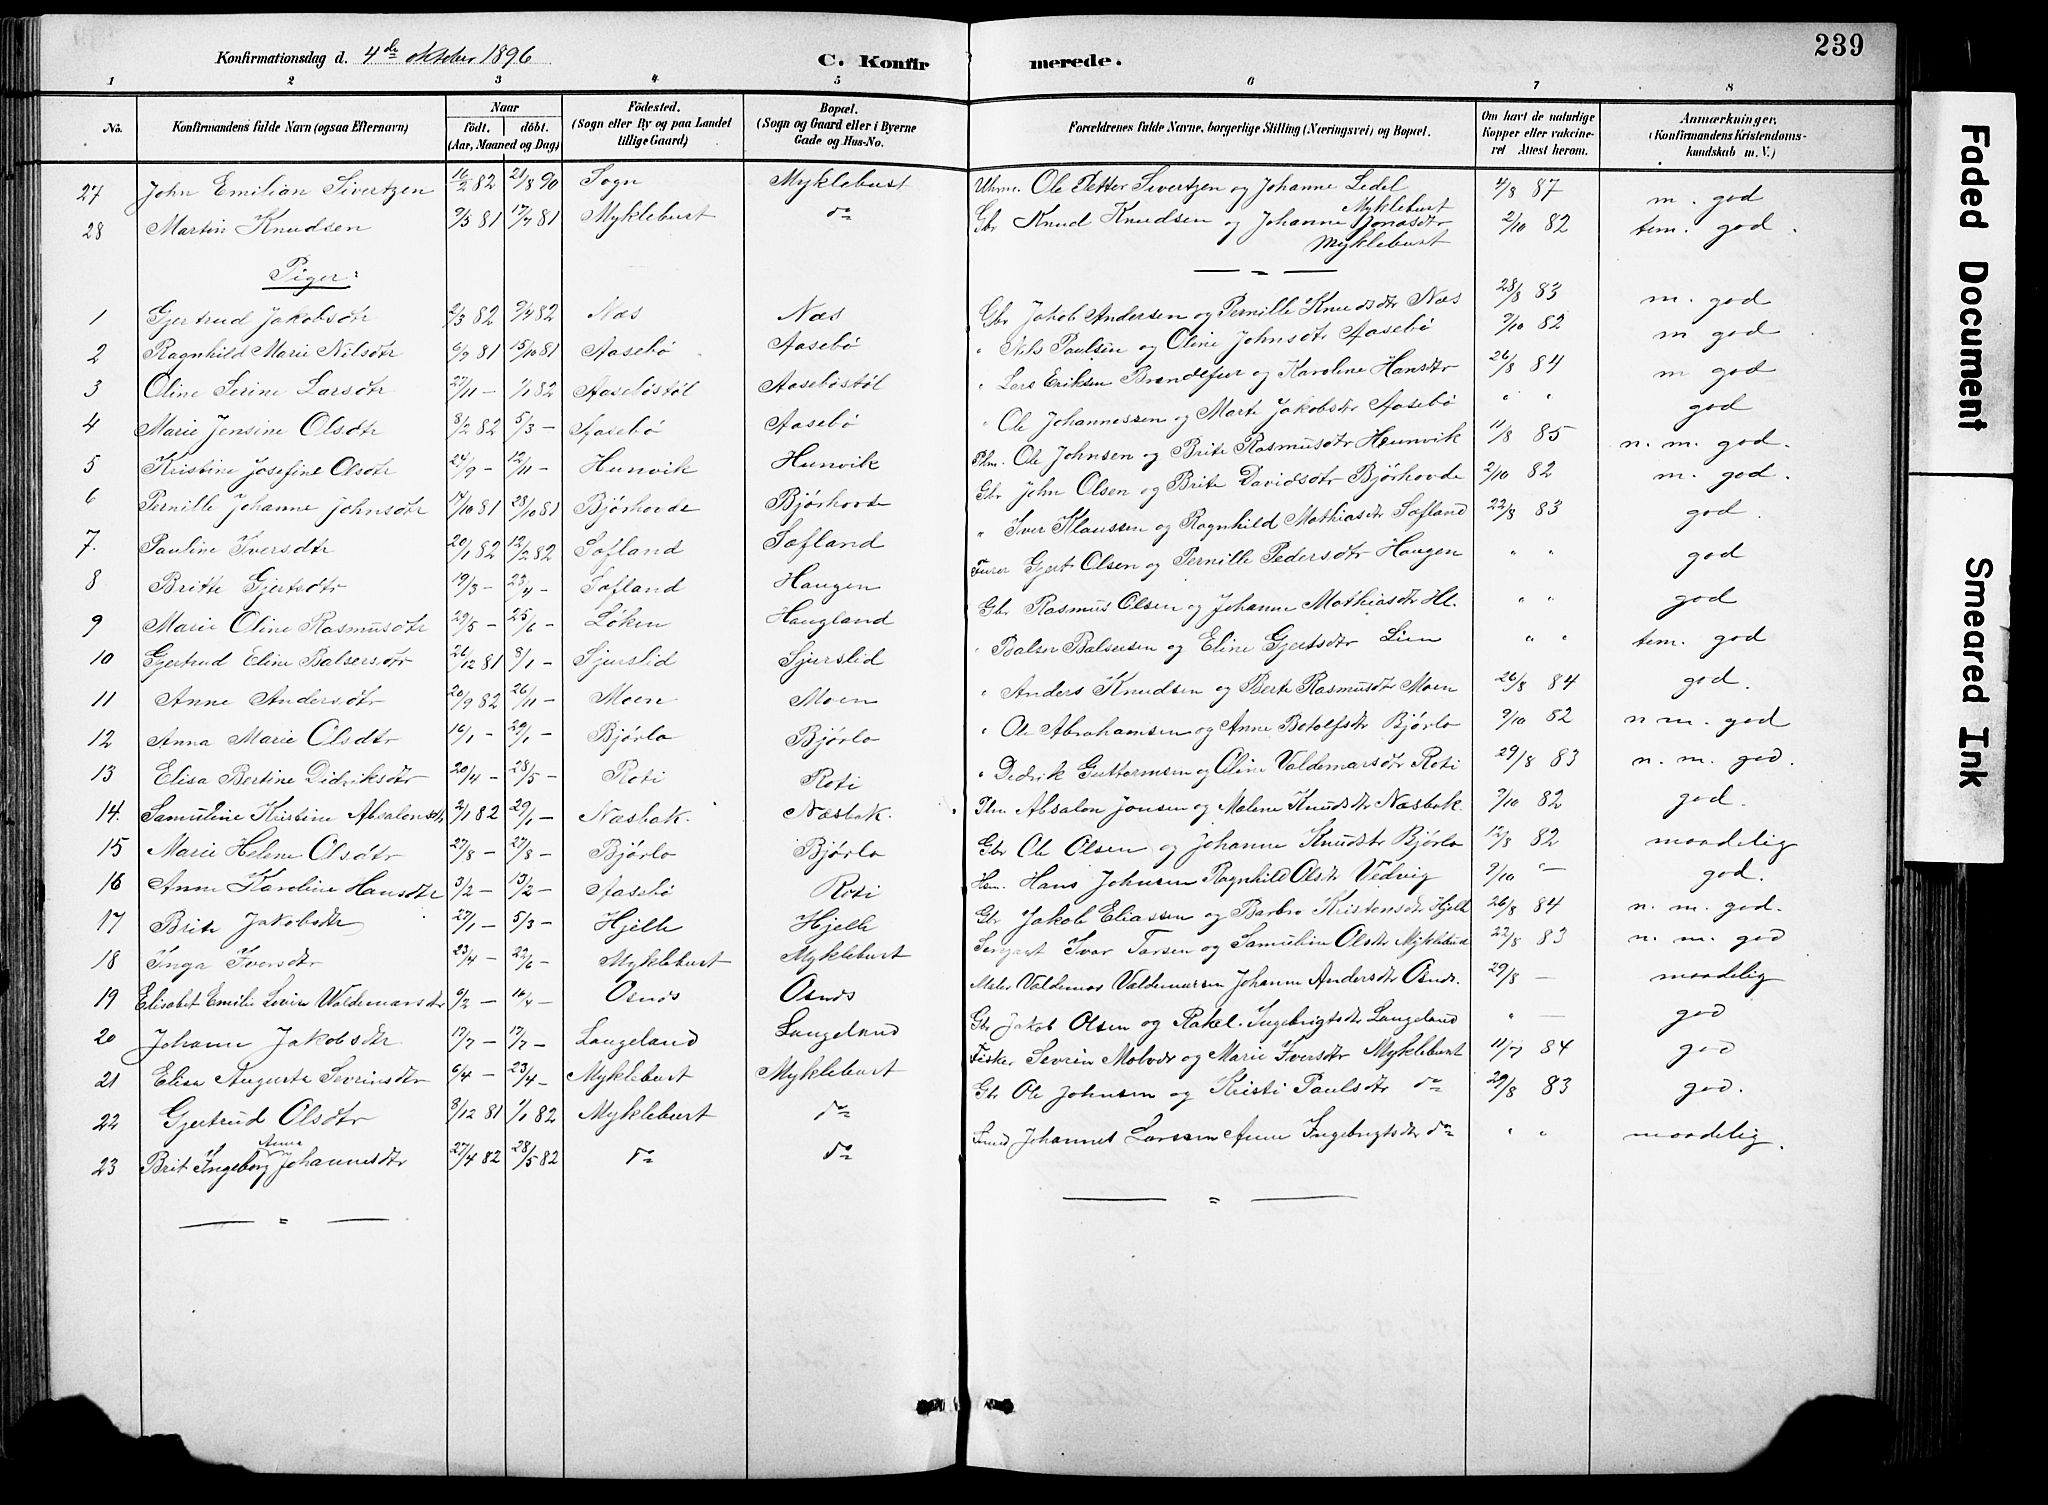 239
Konfirmationsdag d. 4de oktober 1896
C. Konfirmerede.
1 2 3 4 5 6 7 8
No. Konfirmandens fulde Navn (ogsaa Efternavn) Naar födt. döbt. (Aar, Maaned og Dag) Födested. (Sogn eller By og paa Landet tillige Gaard) Bopæl. (Sogn og Gaard eller i Byerne Gade og Hus-No. Forældrenes fulde Navne, borgerlige Stilling (Næringsvei) og Bopæl. Om havt de naturlige Kopper eller vakcineret Attest herom. Anmærkninger. (Konfirmandens Kristendomskundskab m. V.)
27 John Emilian Sivertzen 16/2 82 21/8 90 Sogn Myklebust Uhrm. Ole Petter Sivertzen og Johanne Ledel Myklebust 4/8 87 m. god
28 Martin Knudsen 9/3 81 17/4 81 Myklebust do Gbr Knud Knudsen og Johanne Jonasdtr Myklebust 2/10 82 tem. god.
Piger:
1 Gjertrud Jakobsdtr 2/3 82 9/4 82 Næs Næs Gbr Jakob Andersen og Pernille Knudsdtr Næs 28/8 83 m. god
2 Ragnhild Marie Nilsdtr 6/9 81 15/10 81 Aasebø Aasebø " Nels Paulsen og Oline Johnsdtr Aasebø 9/10 82 m god
3 Oline Serine Larsdtr 27/11 - 1/1 82 Aasebøstøl Aasebøstøl " Lars Eriksen Brandefur og Karoline Hansdtr 26/8 84 m god
4 Marie Jensine Olsdtr 8/2 82 5/3 - Aasebø Aasebø " Ole Johannessen og Marte Jakobsdtr Aasebø " " god
5 Kristine Josefine Olsdtr 24/9 - 12/11 - Hunvik Hunvik Plm. Ole Johnsen og Brite Rasmusdtr Hunvik 11/8 85 n. m. god.
6 Pernille Johanne Johnsdtr 17/10 81 28/10 81 Bjørhovde Bjørhovde Gbr John Olsen og Brite Davidsdtr Bjørhovde 2/10 82 m. god.
7. Pauline Iversdtr 20/1 82 12/2 82 Sofland Sofland " Iver Klaussen og Ragnhild Mathiasdtr Sofland 22/8 83 god.
8 Britte Gjertsdtr 19/3 - 23/4 - Sofland Haugen Furer Gjert Olsen og Pernille Pedersdtr Haugen " " god
9 Marie Oline Rasmusdtr 29/5 - 25/6 - Løken Haugland Gbr Rasmus Olsen og Johanne Mathiasdtr Hl. " " god
10 Gjertrud Eline Balsersdtr 26/12 81 8/1 - Sjurslid Sjurslid " Balser Balsersen og Eline Gjertsdtr Lien " " tem. god
11 Anne Andersdtr 20/9 82 26/11 - Moen Moen " Anders Knudsen og Berte Rasmusdtr Moen 26/8 84 god.
12 Anna Marie Olsdtr 16/1 - 29/1 - Bjørlo Bjørlo " Ole Abrahamsen og Anne Botolfsdtr Bjørlo 9/10 82 n m. god
13 Elisa Bertine Didriksdtr 20/4 - 28/5 - Roti Roti " Dedrik Guttormsen og Oline Valdemarsdtr Roti 29/8 83 n. m. god.
14. Samuline Kristine Absalonsdtr 2/1 82 29/1 - Næsbak. Næsbak. Plm Absalon Jonsen og Malene Knudsdtr Næsbak. 9/10 82 god.
15 Marie Helene Olsdtr 27/8 - 27/8 - Bjørlo Bjørlo Gbr Ole Olsen og Johanne Knudsdtr Bjørlo 12/8 82 maadelig
16 Anne Karoline Hansdtr 3/2 - 13/2 - Aasebø Roti Hsm. Hans Johnsen Ragnhild Olsdtr Vedvig 9/10 " - god.
17 Brite Jakobsdtr 27/1 - 5/3 - Hjelle Hjelle Gbr Jakob Eliassen og Barbro Kristensdtr Hjelle 26/8 84 n. m. god.
18 Inga Iversdtr 23/4 - 22/6 - Myklebust Myklebust Serjant Ivar Torsen og Samuline Olsdtr Myklebust 22/8 83 n. m. god
19 Elisabet Emilie Waldemarsdtr 6/2 - 16/4 - Osnes Osnes Maler Valdemar Valdemarsen Johanne Andersdtr Osnes. 29/8 - maadelig
20 Johanne Jakobsdtr 17/7 - 17/7 - Langeland Langeland Gbr Jakob Olsen og Rakel Ingebrigtsdtr Langeland " - god
21 Elisa Augusta Sevrinsdtr 6/4 - 23/4 - Myklebust Myklebust Fisker Sevrin Molvær og Marie Iversdtr Myklebust 11/7 84 god
22 Gjertrud Olsdtr 8/12 81 1/1 82 Myklebust do Gbr Ole Johnsen og Kristi Paulsdtr do 29/8 83 god.
23 Brit Ingeborg Anna Johannesdtr 27/4 82 28/5 82 do do Johannes Larssen Anne Ingebrigtsdtr do " " maadelig.
Faded Document
Smeared Ink